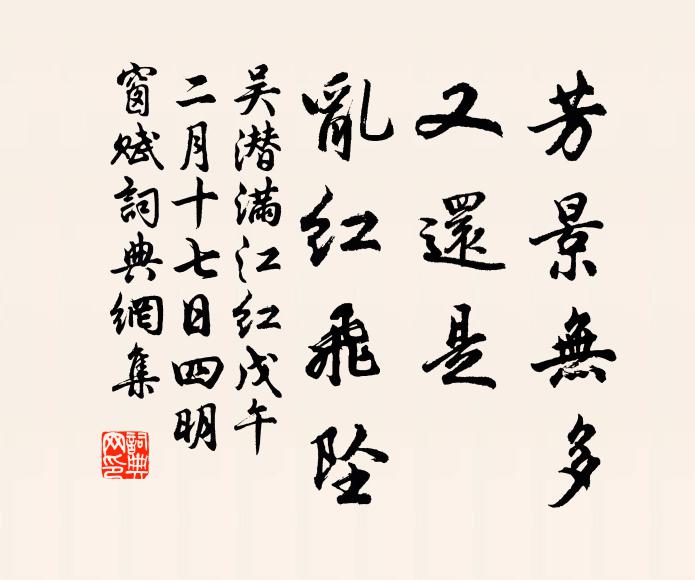 芳景無多
又還是
亂紅飛墜
吴潜满江红戊午
二月十七日四明
窗赋詞典網集
詞典网印